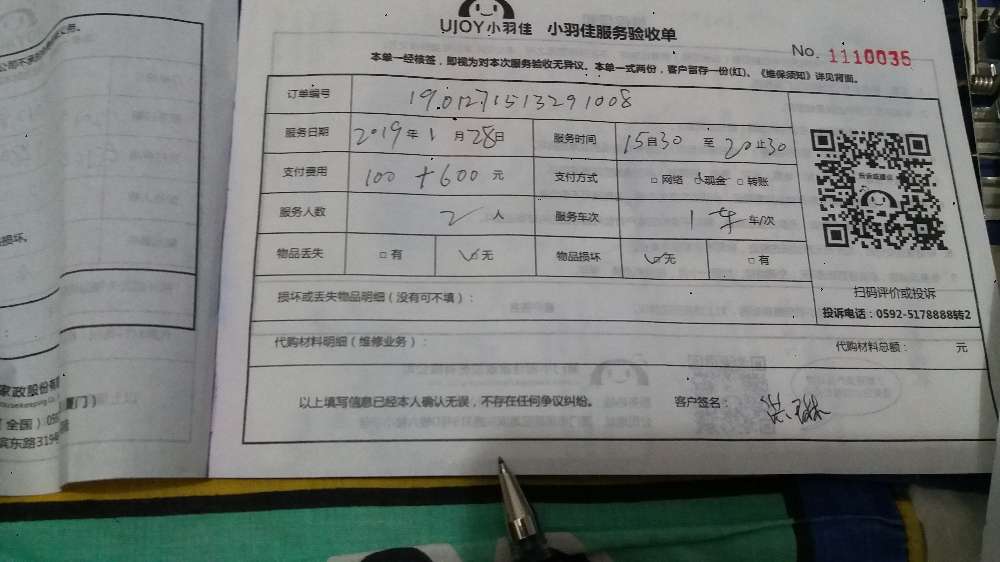 UJOY小羽佳 小羽佳服务验收单
No. 1110035
本单一经核签，即视为对本次服务验收无异议。本单一式两份，客户留存一份(红)、《维保须知》详见背面。
订单编号 1901271513291008
服务日期 2019年1月28日 服务时间 15时30至20止30
支付费用 100+600元 支付方式 □网络 ☑现金 □转账
服务人数 2人 服务车次 1车车/次
物品丢失 □有 ☑无 物品损坏 ☑无 □有
投诉或建议
扫码评价或投诉
投诉电话：0592-5178888转2
损坏或丢失物品明细（没有可不填）：
代购材料明细（维修业务）： 代购材料总额： 元
以上填写信息已经本人确认无误，不存在任何争议纠纷。 客户签名：
损坏。
家政股份有
（全国）
滨东路319